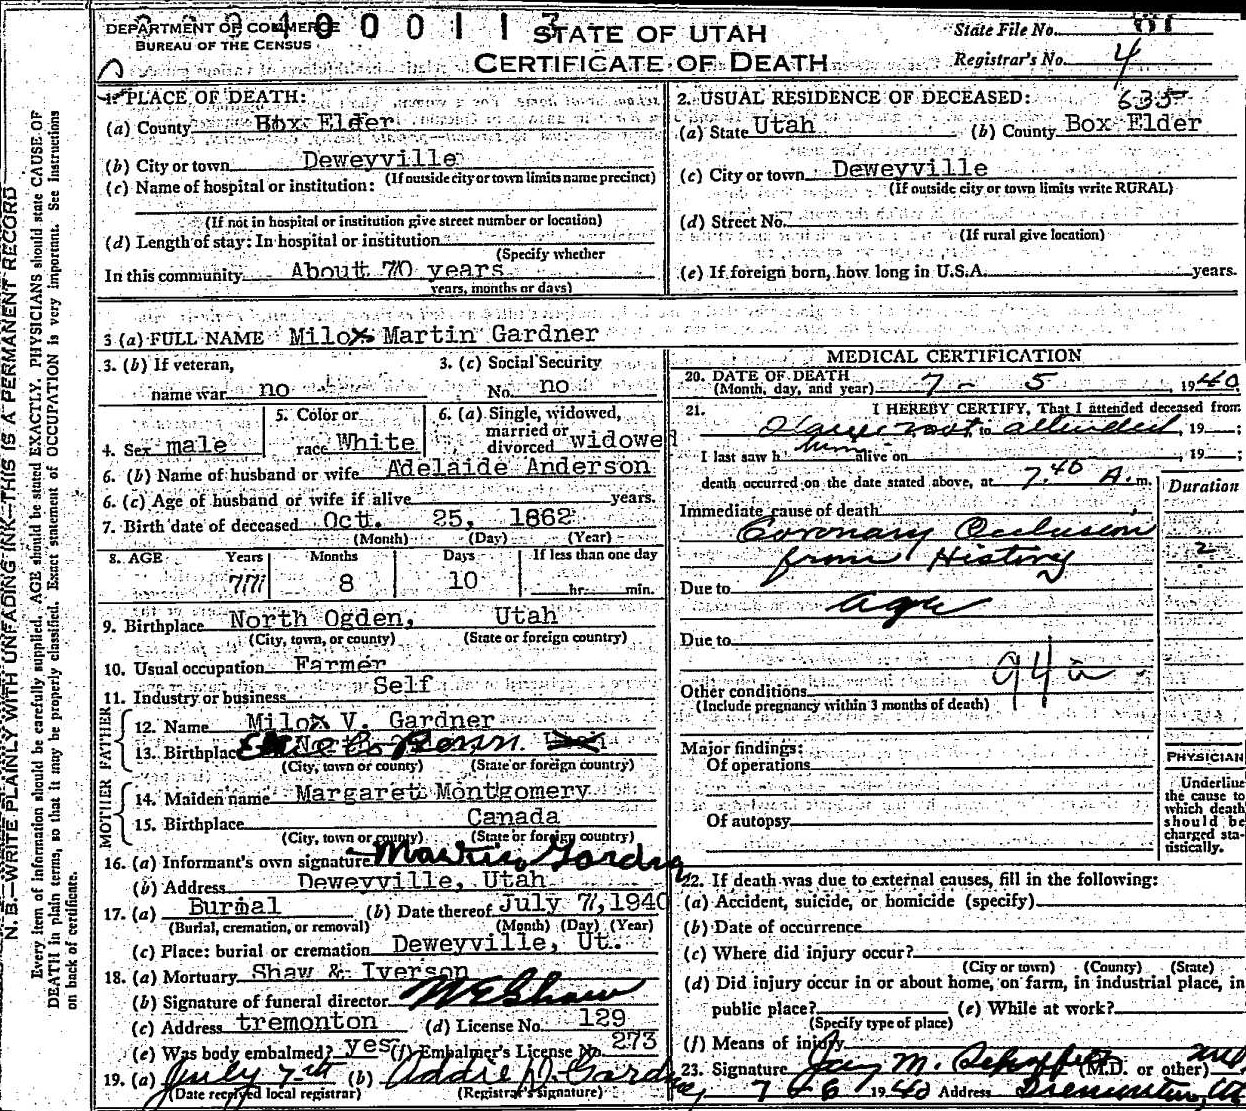 DEPARTMENT OF COMMERCE
BUREAU OF THE CENSUS
STATE OF UTAH
CERTIFICATE OF DEATH
State File No.
Registrar's No. 4
N.B.—WRITE PLAINLY WITH UNFADING INK—THIS IS A PERMANENT RECORD
Every item of information should be carefully supplied. AGE should be stated EXACTLY. PHYSICIANS should state CAUSE OF
DEATH in plain terms, so that it may be properly classified. Exact statement of OCCUPATION is very important. See Instructions
on back of certificate.
1. PLACE OF DEATH:
(a) County Box Elder
(b) City or town Deweyville
(If outside city or town limits name precinct)
(c) Name of hospital or institution:
(If not in hospital or institution give street number or location)
(d) Length of stay: In hospital or institution
(Specify whether
In this community About 70 years
years, months or days)
2. USUAL RESIDENCE OF DECEASED: 635
(a) State Utah (b) County Box Elder
(c) City or town Deweyville
(If outside city or town limits write RURAL)
(d) Street No.
(If rural give location)
(e) If foreign born, how long in U.S.A. years.
3 (a) FULL NAME Milo Martin Gardner
3. (b) If veteran,
name war no
3. (c) Social Security
No. no
4. Sex male
5. Color or
race White
6. (a) Single, widowed,
married or
divorced widowed
6. (b) Name of husband or wife Adelaide Anderson
6. (c) Age of husband or wife if alive years.
7. Birth date of deceased Oct. 25, 1862
(Month) (Day) (Year)
8. AGE Years Months Days If less than one day
77 8 10 hr. min.
9. Birthplace North Ogden, Utah
(City, town, or county) (State or foreign country)
10. Usual occupation Farmer
11. Industry or business Self
FATHER
12. Name Milo V. Gardner
13. Birthplace
(City, town or county) (State or foreign country)
MOTHER
14. Maiden name Margaret Montgomery
15. Birthplace Canada
(City, town or county) (State or foreign country)
16. (a) Informant's own signature Gardner
(b) Address Deweyville, Utah
17. (a) Burial (b) Date thereof July 7, 1940
(Burial, cremation, or removal) (Month) (Day) (Year)
(c) Place: burial or cremation Deweyville, Ut.
18. (a) Mortuary Shaw & Iverson
(b) Signature of funeral director W E Shaw
(c) Address tremonton (d) License No. 129
(e) Was body embalmed? yes (f) Embalmer's License No. 273
19. (a) July 7-th (b) Addie D. Gardner
(Date received local registrar) (Registrar's signature)
MEDICAL CERTIFICATION
20. DATE OF DEATH
(Month, day, and year) 7 - 5, 1940
21. I HEREBY CERTIFY, That I attended deceased from
not to attended, 19 ;
I last saw h him alive on , 19 ;
death occurred on the date stated above, at 7.40 A. m.
Duration
Immediate cause of death
Coronary Occlusion
from History 2
Due to
age
Due to
94a
Other conditions
(Include pregnancy within 3 months of death)
Major findings:
Of operations
Of autopsy
PHYSICIAN
Underline
the cause to
which death
should be
charged sta-
tistically.
22. If death was due to external causes, fill in the following:
(a) Accident, suicide, or homicide (specify)
(b) Date of occurrence
(c) Where did injury occur?
(City or town) (County) (State)
(d) Did injury occur in or about home, on farm, in industrial place, in
public place? (e) While at work?
(Specify type of place)
(f) Means of injury
23. Signature Jay M. (M.D. or other) MD
7 - 6 1940 Address Tremonton, Ut